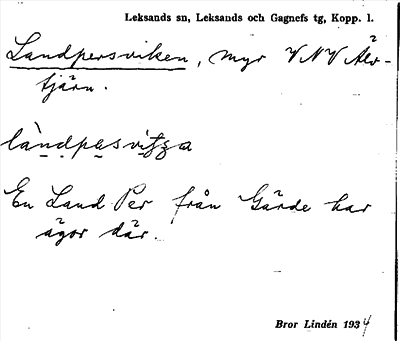 Leksands sn, Leksands och Gagnefs tg, Kopp. l.
Landpersviken, myr VNV Älv-
tjärn.
làndpasvi
En Land Per från Gärde har
ägor där.
Bror Lindén 1934